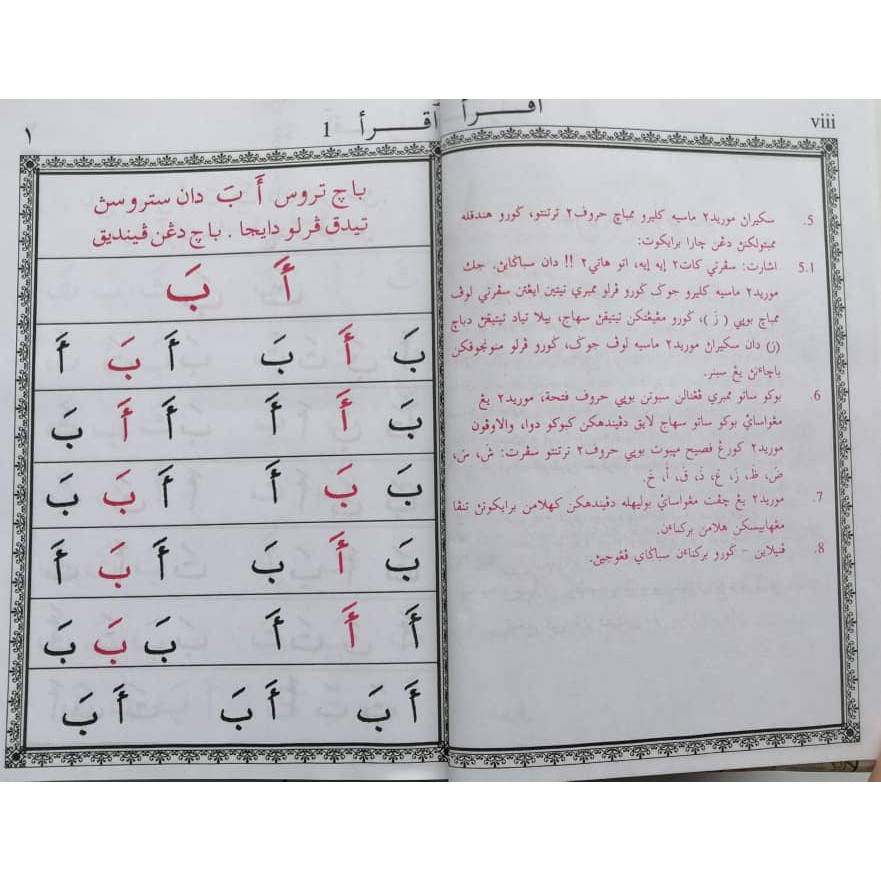 viii
اقـــرأ
5. سكيراڽ موريد٢ ماسيه كليرو ممباچ حروف٢ ترتنتو، ݢورو هندقله
ممبتولكنڽ دڠن چارا برايكوت:
5.1 اشارت: سڤرتي كات٢ إيه إيه، اتو هاتي٢ !! دان سباݢاين. جك
موريد٢ ماسيه كليرو جوݢ ݢورو ڤرلو ممبري تيتين ايڠتن سڤرتي لوڤ
ممباچ بوڽي ( زَ )، ݢورو مڠيڠتكن تيتيقڽ سهاج، بيلا تياد تيتيقڽ دباچ
(ر) دان سكيراڽ موريد٢ ماسيه لوڤ جوݢ، ݢورو ڤرلو منونجوقكن
باچاءن يڠ سبنر.
6. بوكو ساتو ممبري ڤڠنالن سبوتن بوڽي حروف فتحة، موريد٢ يڠ
مڠواساءي بوكو ساتو سهاج لايق دڤيندهكن كبوكو دوا، والاوڤون
موريد٢ كورڠ فصيح مڽبوت بوڽي حروف٢ ترتنتو سڤرت: شَ، سَ،
صَ، ظَ، زَ، عَ، ذَ، قَ، أَ، خَ.
7. موريد٢ يڠ چڤت مڠواساءي بوليهله دڤيندهكن كهلامن برايكوتڽ تنڤا
مڠهابيسكن هلامن بركناءن.
8. ڤنيلاين - ݢورو بركناءن سباݢاي ڤڠوجين.
١
اقـــرأ 1
باچ تروس أَ بَ دان ستروسڽ
تيدق ڤرلو دايجا . باچ دڠن ڤينديق
أَ بَ
بَ أَ بَ أَ بَ أَ
بَ أَ أَ أَ أَ بَ
بَ بَ أَ أَ بَ بَ
بَ أَ بَ أَ بَ أَ
أَ أَ أَ بَ بَ بَ
أَ بَ أَ بَ أَ بَ